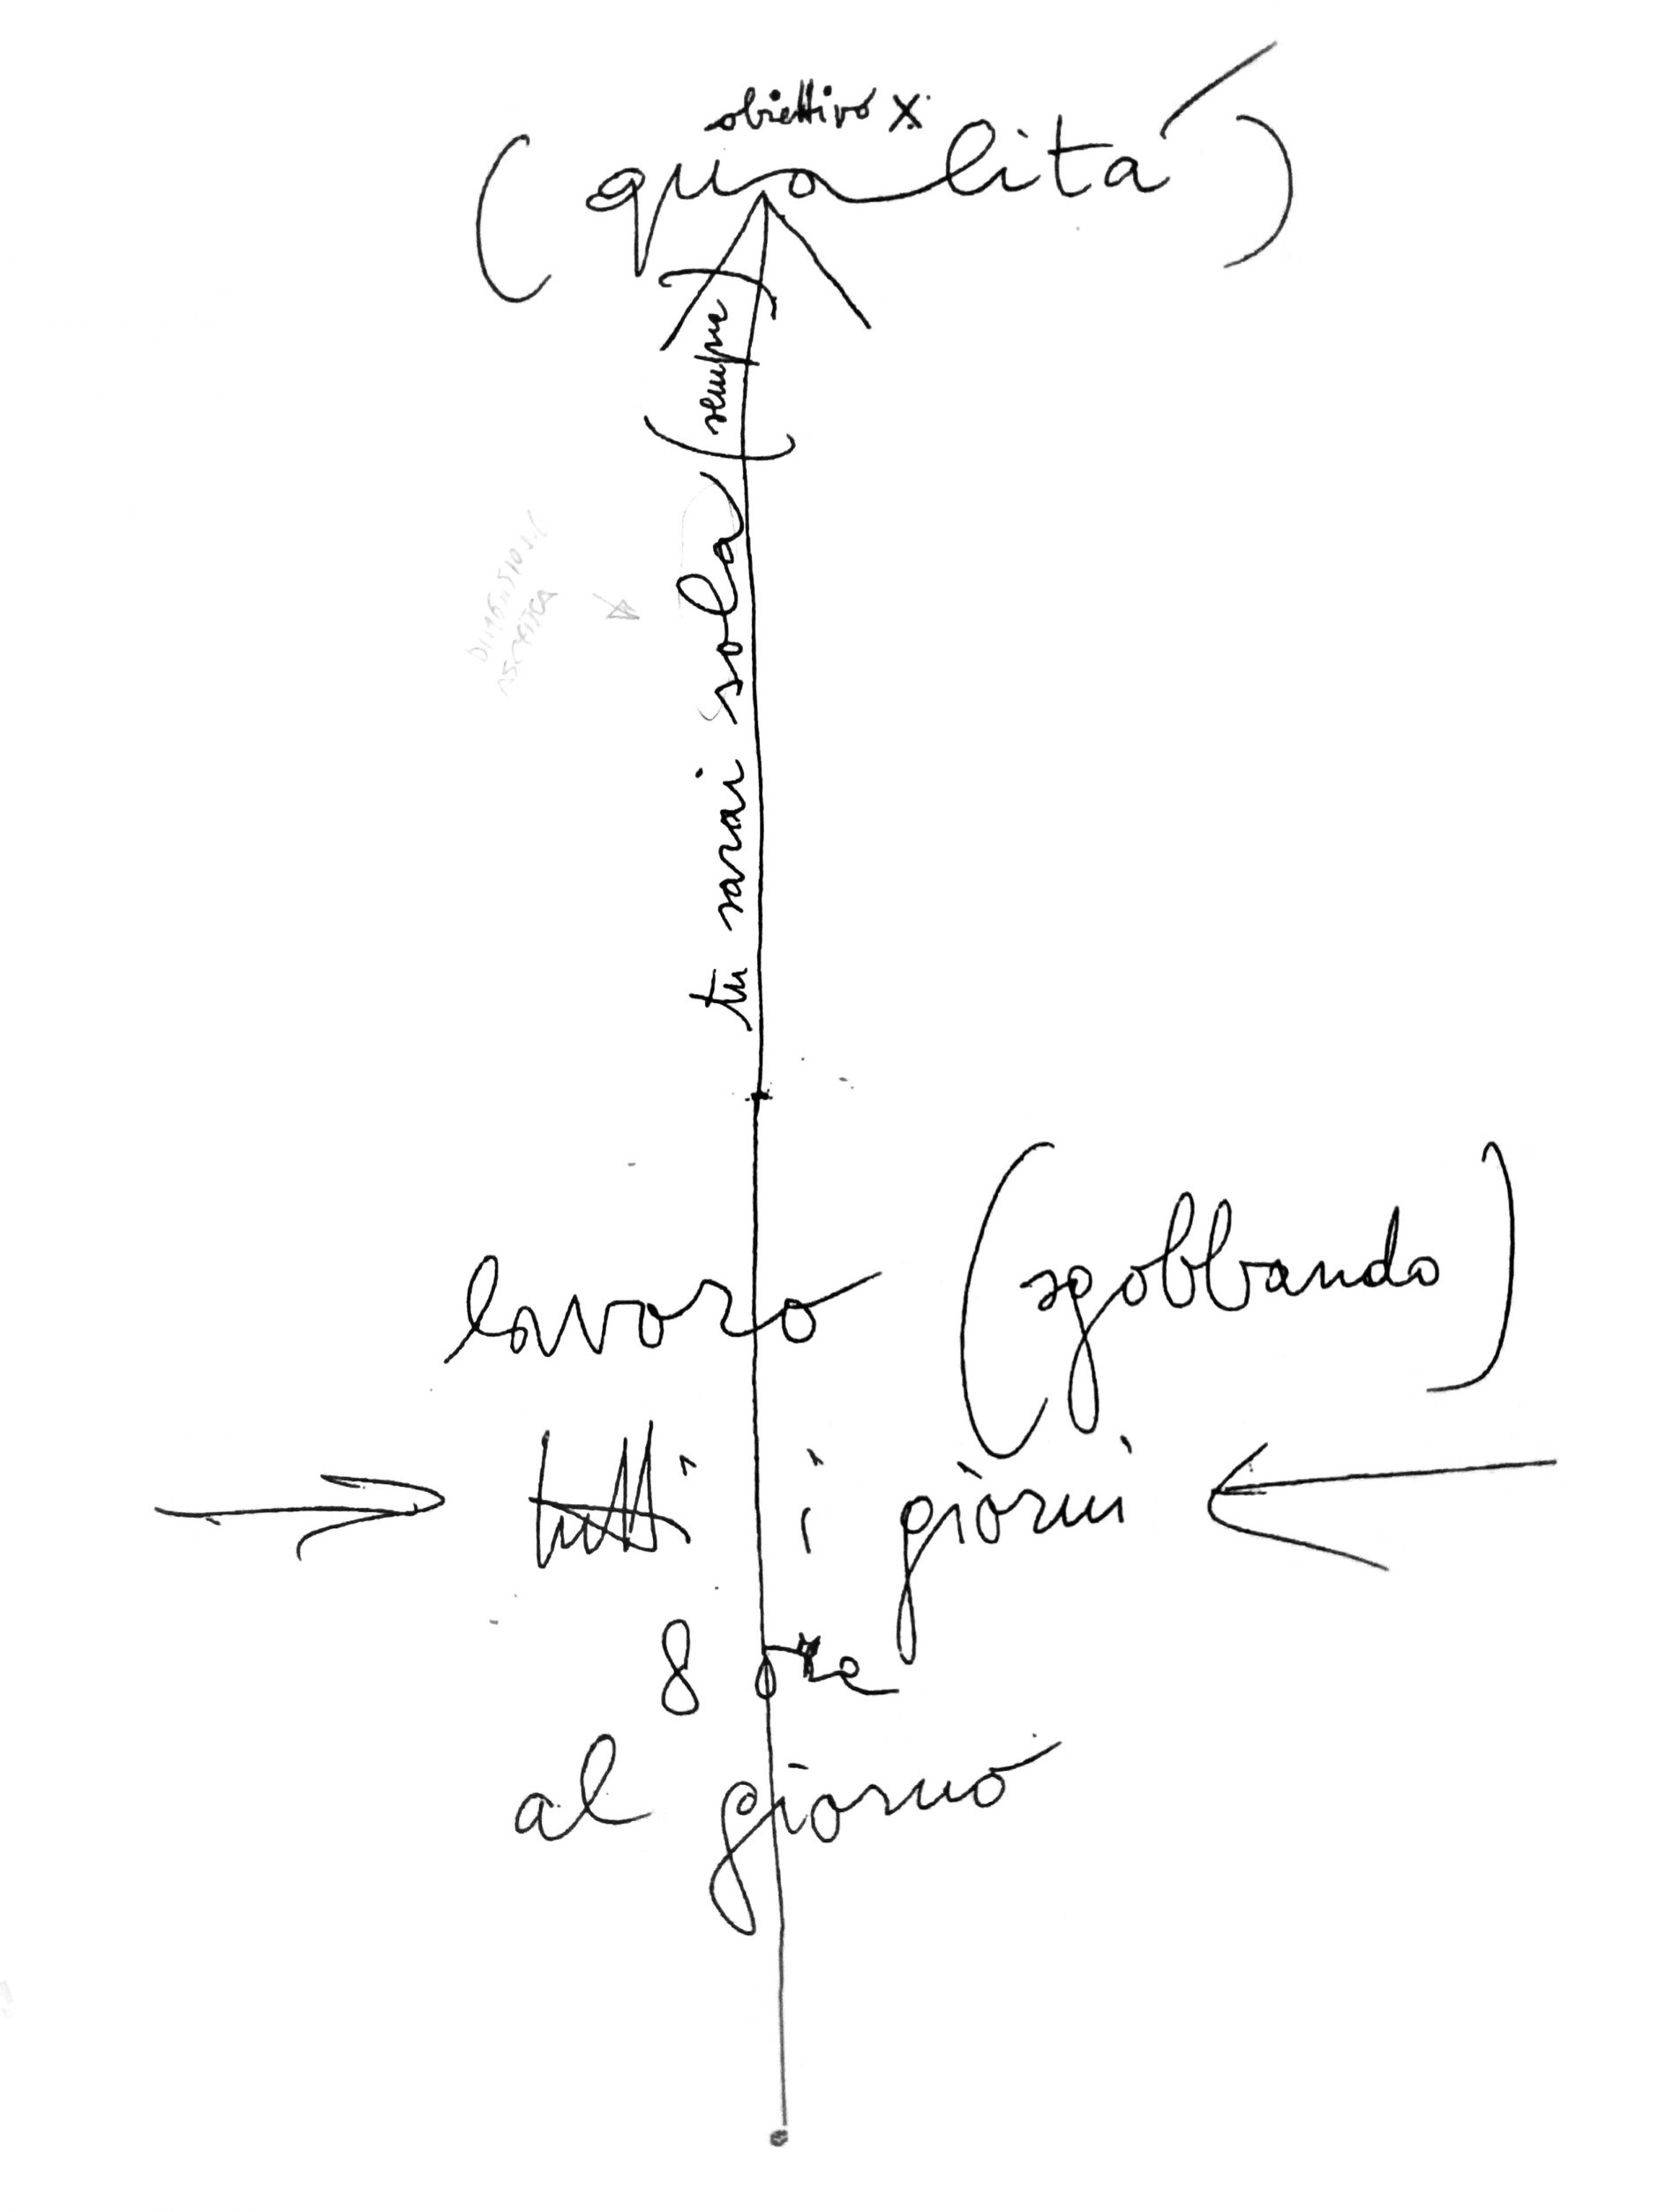 obiettivo X
(qualità)
(sempre)
tu sarai sola
DIMENSIONE
ASCETICA
lavoro (sgobbando)
tutti i giorni
8 ore
al giorno